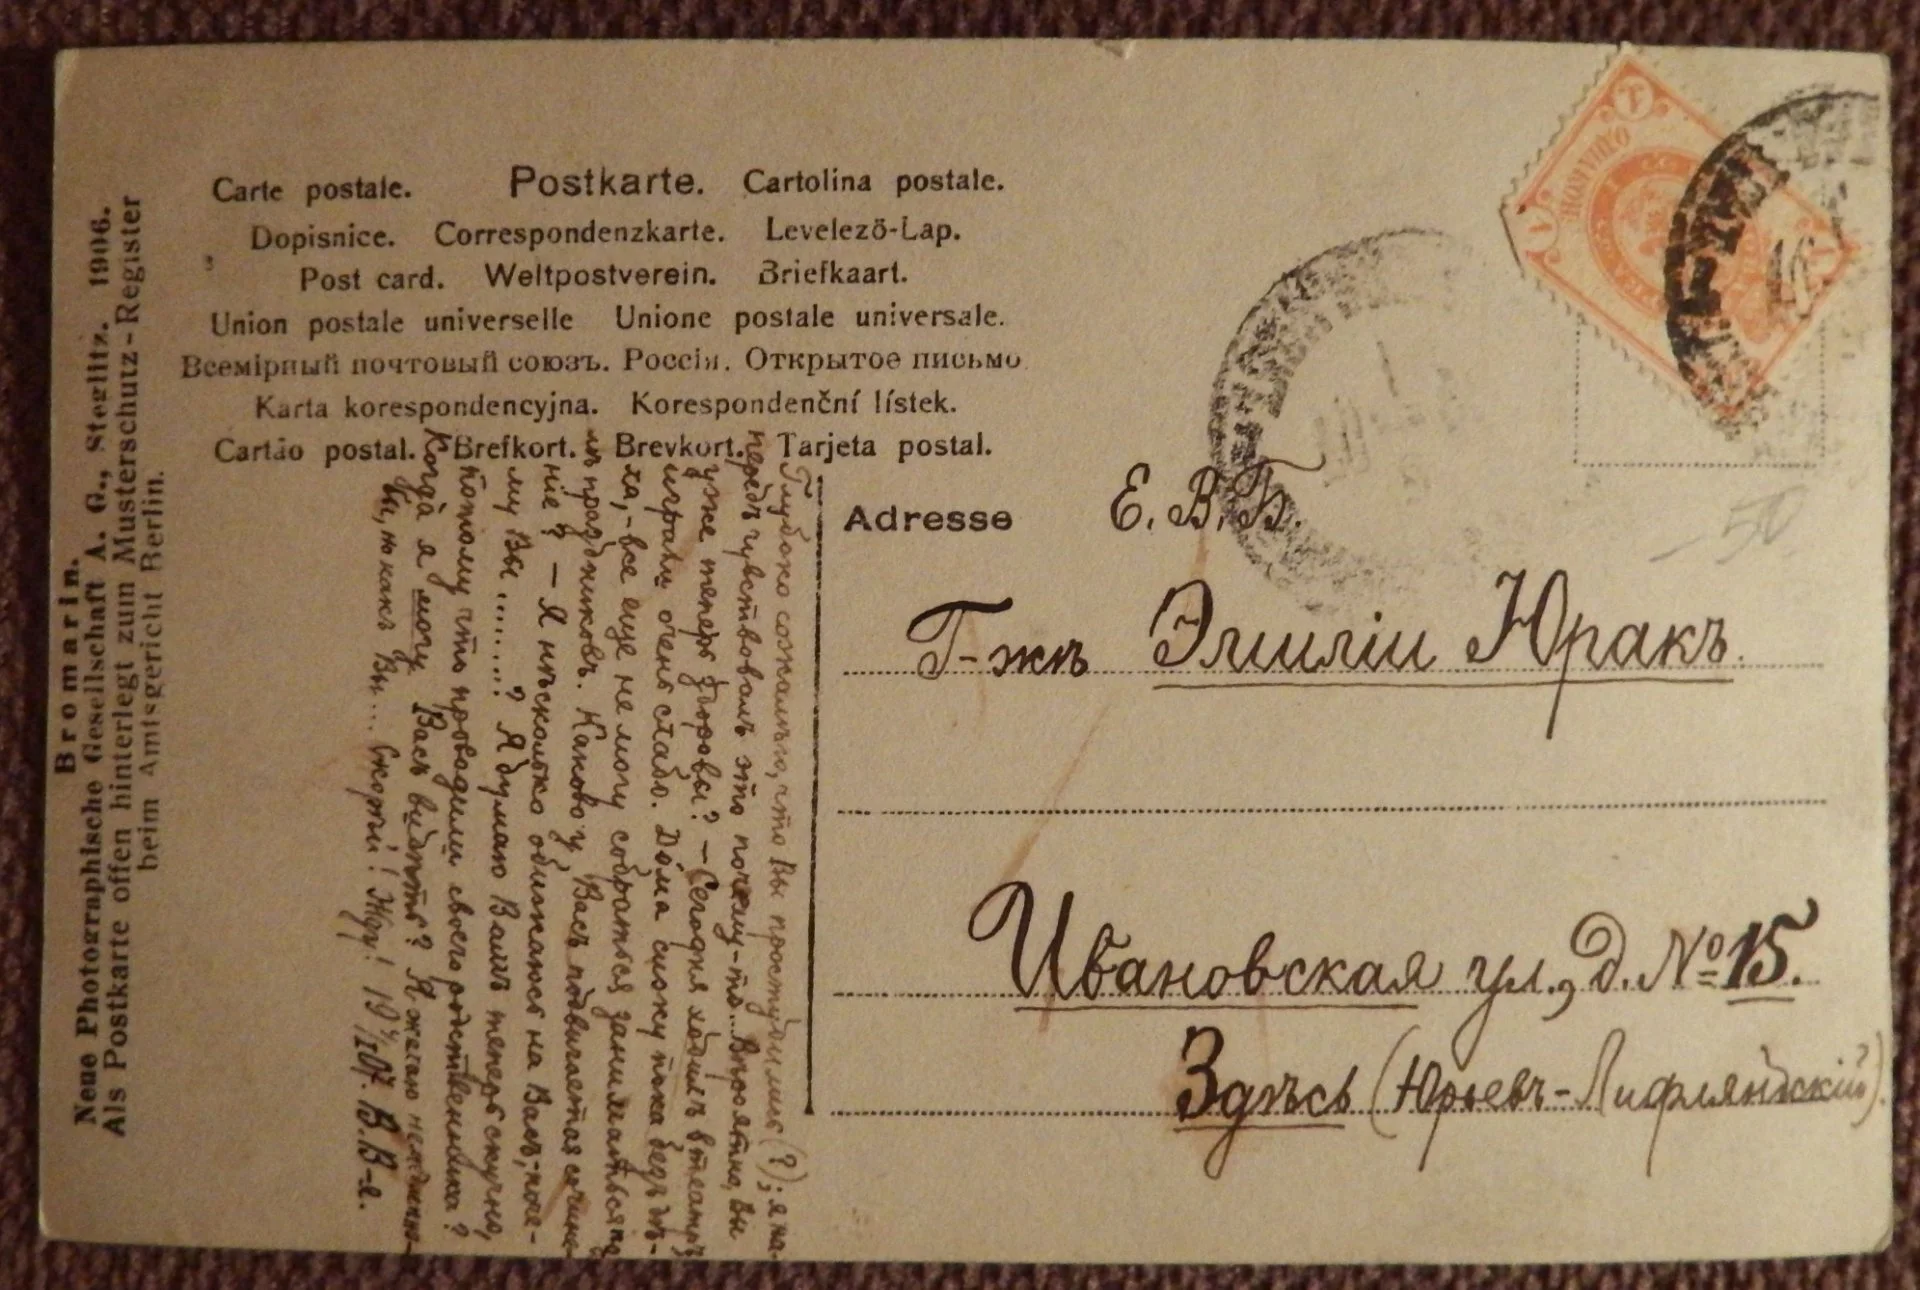 Bromarin.
Neue Photographische Gesellschaft A. G., Steglitz. 1906.
Als Postkarte offen hinterlegt zum Musterschutz-Register
beim Amtsgericht Berlin.
Carte postale. Postkarte. Cartolina postale.
Dopisnice. Correspondenzkarte. Levelezö-Lap.
Post card. Weltpostverein. Briefkaart.
Union postale universelle Unione postale universale.
Всемірный почтовый союзъ. Россія. Открытое письмо
Karta korespondencyjna. Korespondenční lístek.
Cartão postal. Brefkort. Brevkort. Tarjeta postal.
Глубоко сожалѣю, что Вы простудились (?); я на-
передъ чувствовалъ это почему-то... Вѣроятно, Вы
уже теперь здоровы? – Сегодня ходилъ въ театръ,
играли очень слабо. Дома сижу пока безъ дѣ-
ла, – все еще не могу собраться заниматься по-
слѣ праздниковъ. Каково у Васъ подвигается сочине-
ніе? – Я нѣсколько обижаюсь на Васъ, – поче-
му Вы ........? Я думаю Вамъ теперь скучно,
потому что проводили своего родственника?
Когда я могу Васъ видѣть? Я желаю
бы, но какъ Вы... Скорѣй! Жду! 10 /I 07. В. В-я.
Adresse
Е. В. Б.
Г-жѣ Эмиліи Юракъ.
Ивановская ул., д. № 15.
Здѣсь (Юрьевъ-Лифляндскій).
50